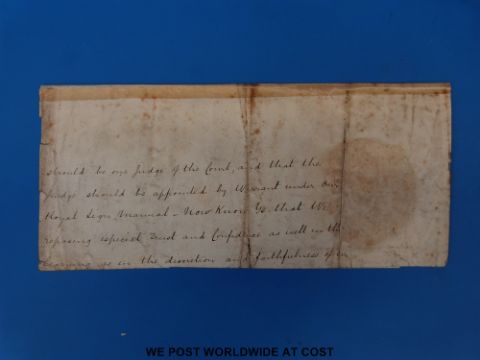 should be one Judge of the Court, and that the
Judge should be appointed by Warrant under Our
Royal Sign Manual - Now Know Ye that We
reposing especial Trust and Confidence as well in the
learning as in the discretion and faithfulness of
WE POST WORLDWIDE AT COST